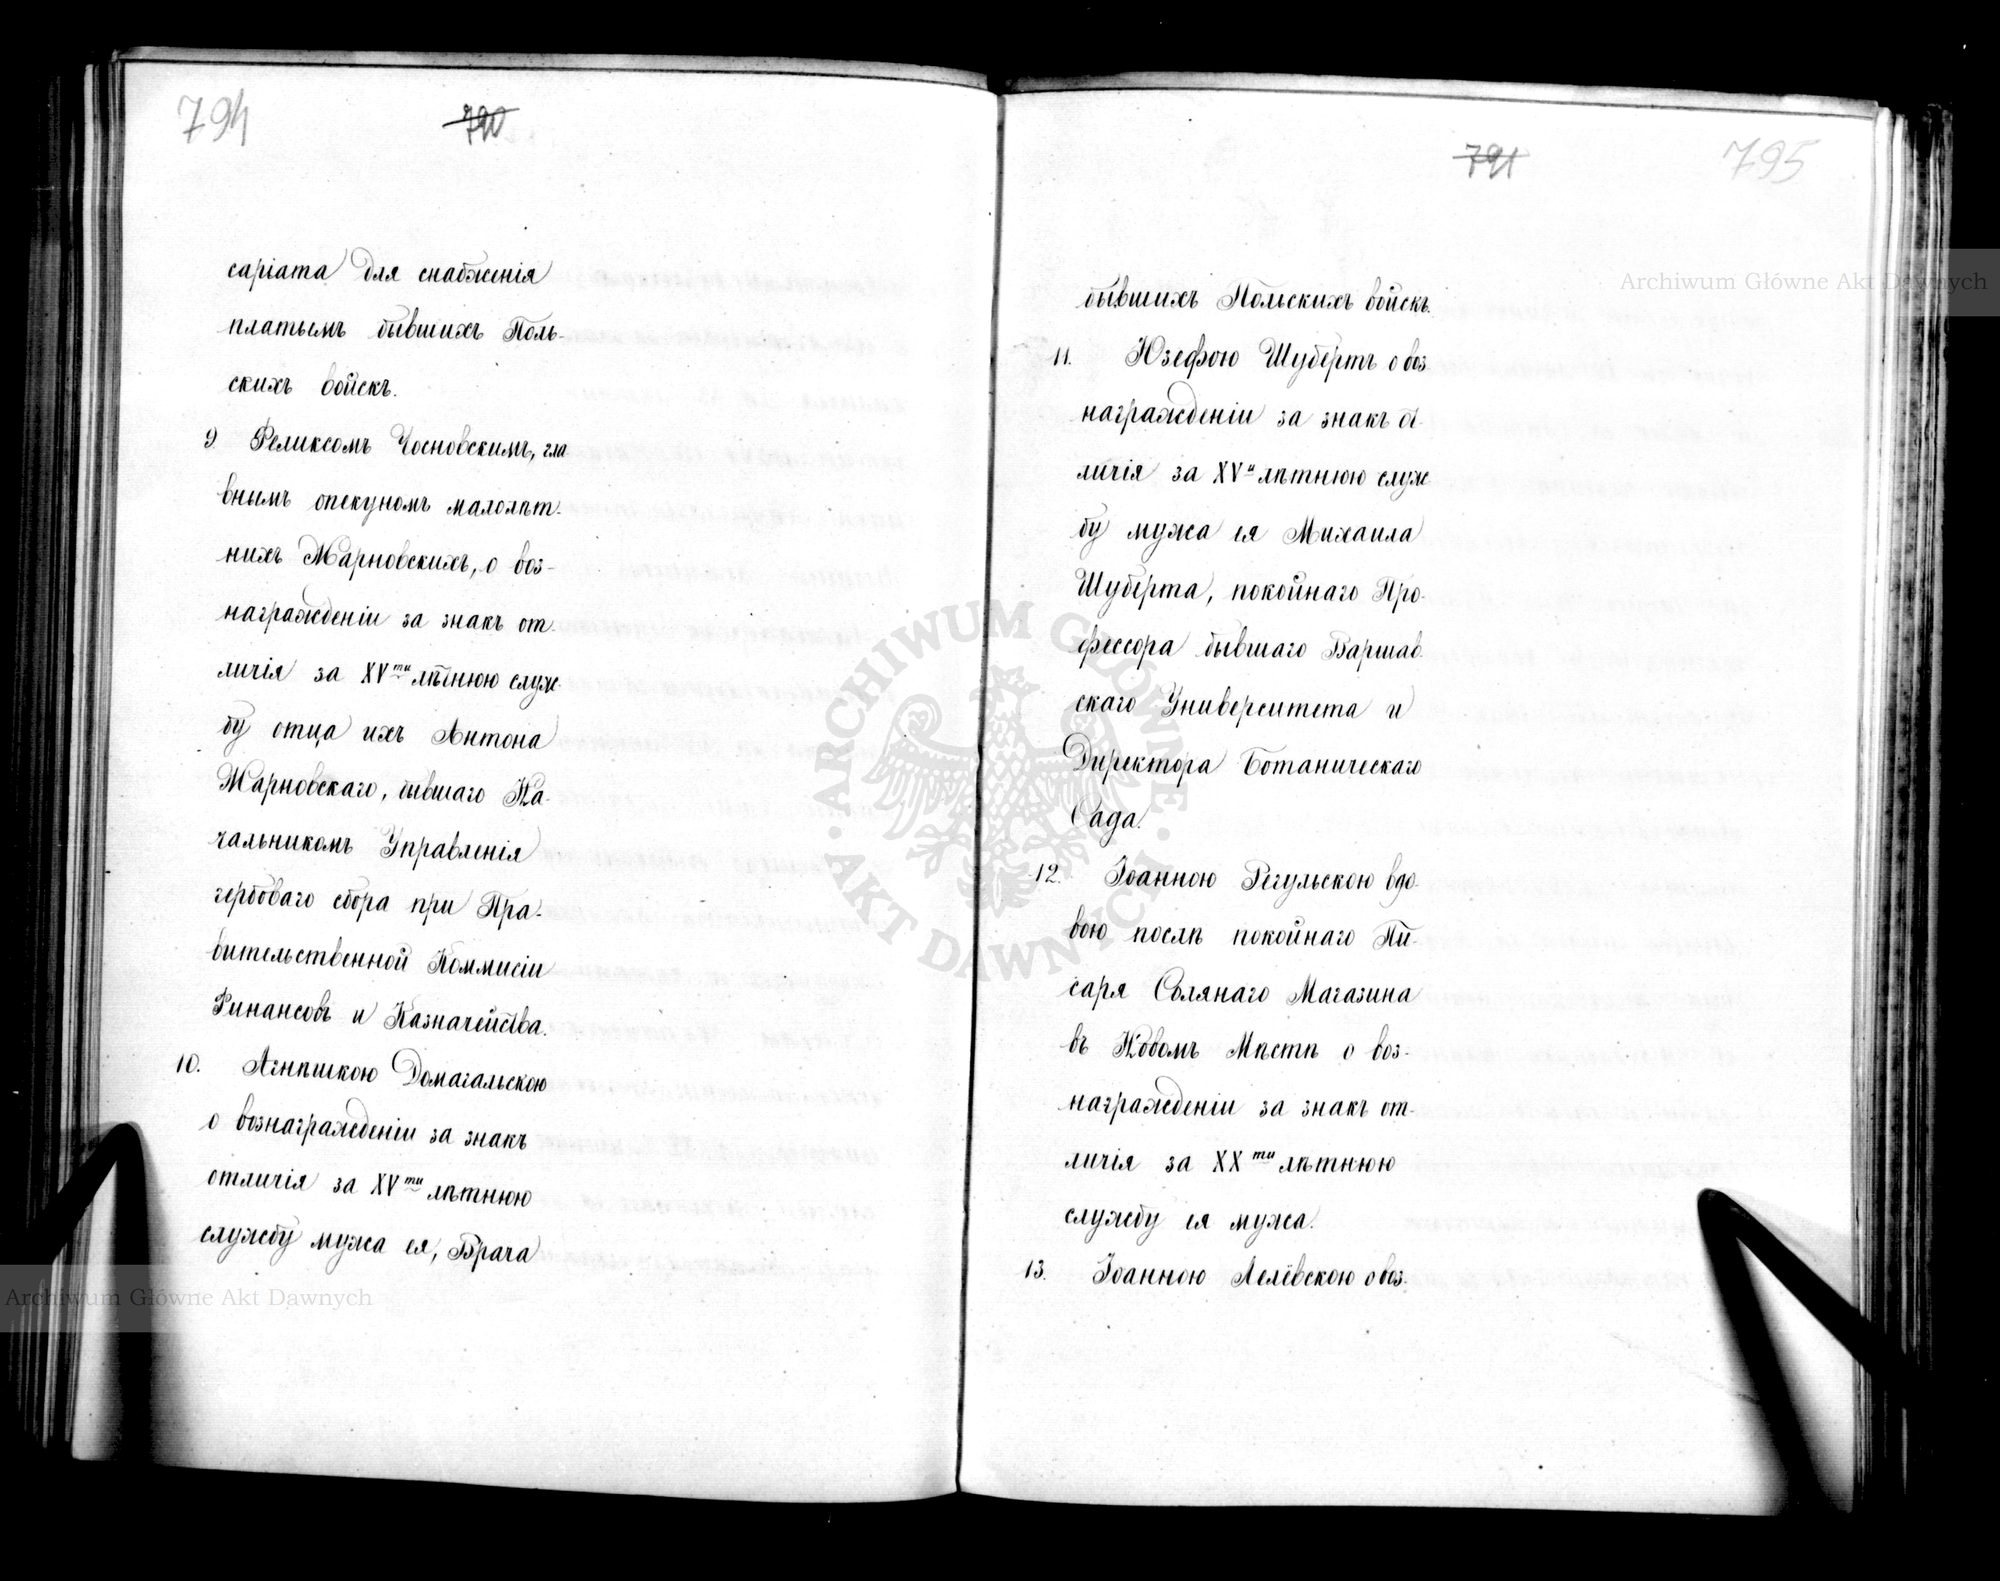 794
790
саріата для снабженія
платьемъ бывшихъ Поль-
скихъ войскъ.
9 Феликсомъ Чосновскимъ, гла
внымъ опекуномъ малолѣт-
нихъ Жарновскихъ, о воз-
награжденіи за знакъ от-
личія за XVти лѣтнюю служ-
бу отца ихъ Антона
Жарновскаго, бывшаго На-
чальникомъ Управленія
гербоваго сбора при Пра-
вительственной Коммисіи
Финансовъ и Казначейства.
10. Агнѣшкою Домагальскою
о вознагражденіи за знакъ
отличія за XVти лѣтнюю
службу мужа ея, Врача
791
795
бывшихъ Польскихъ войскъ.
11. Юзефою Шубертъ о воз
награжденіи за знакъ от-
личія за XVи лѣтнюю служ
бу мужа ея Михаила
Шуберта, покойнаго Про-
фессора бывшаго Варшав-
скаго Университета и
Директора Ботаническаго
Сада.
12. Іоанною Регульскою вдо-
вою послѣ покойнаго Пи
саря Солянаго Магазина
въ Новомъ Мѣстѣ о воз-
награжденіи за знакъ от-
личія за XXти лѣтнюю
службу ея мужа.
13. Іоанною Лелевскою о воз-
Archiwum Główne Akt Dawnych
Archiwum Główne Akt Dawnych
ARCHIWUM GŁÓWNE AKT DAWNYCH